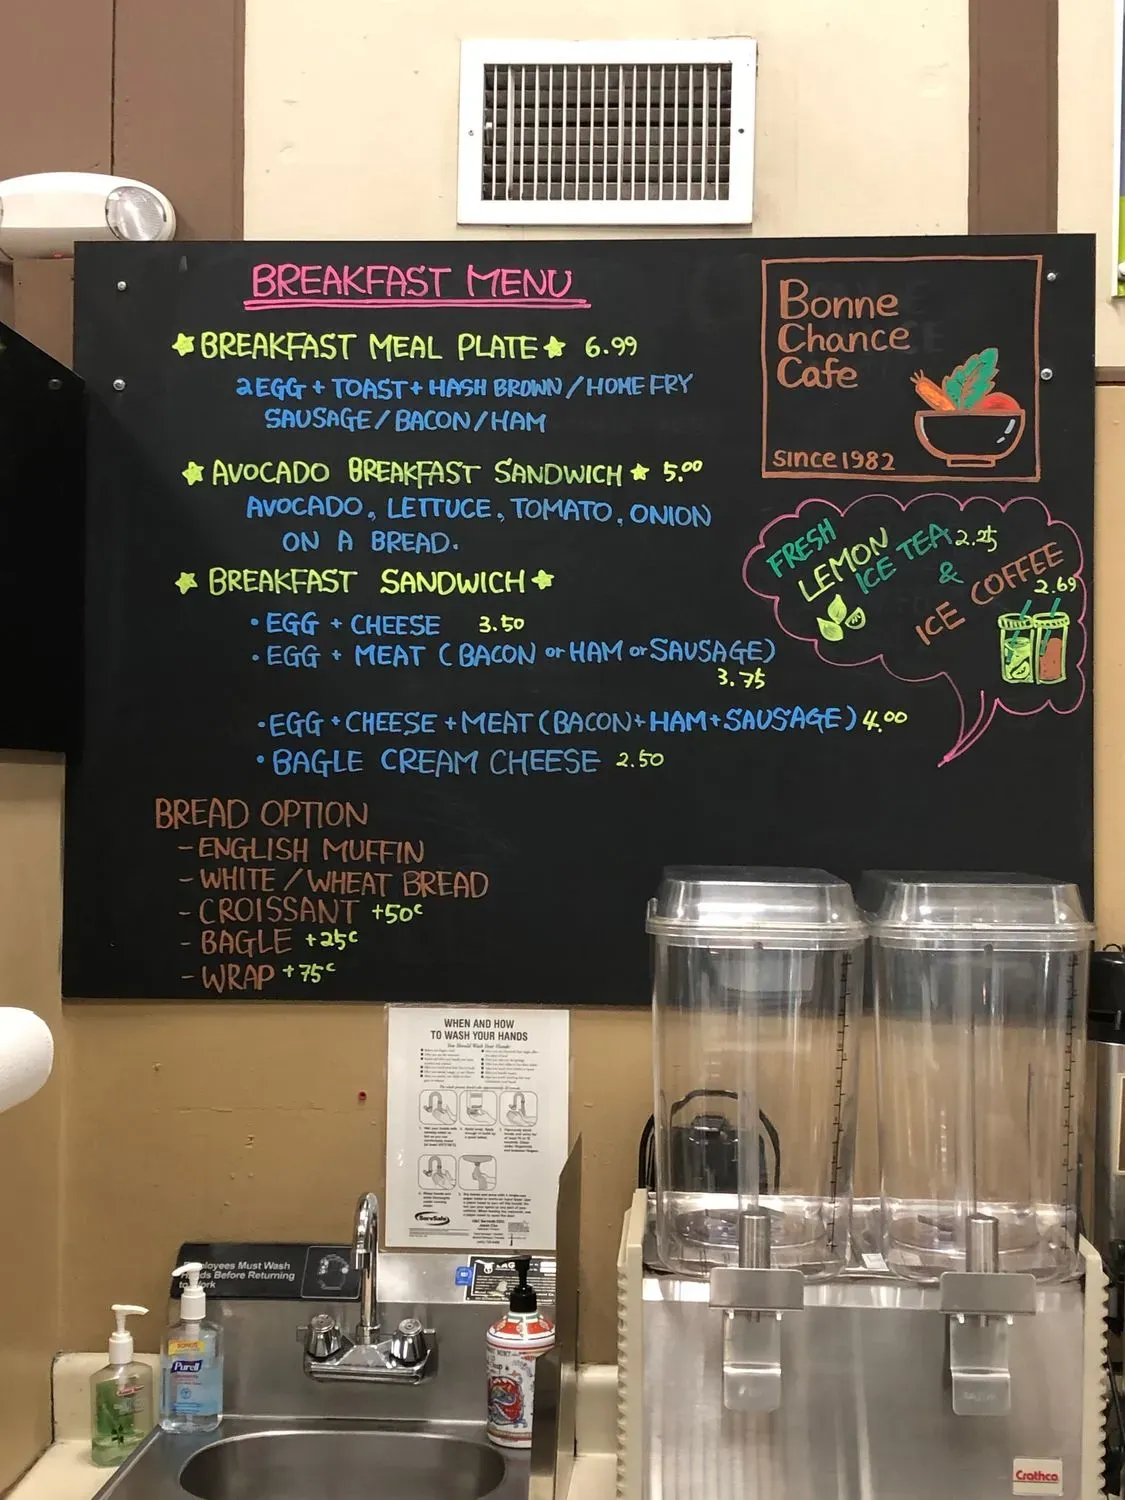 BREAKFAST MENU
BREAKFAST MEAL PLATE 6.99
2EGG + TOAST + HASH BROWN / HOME FRY
SAUSAGE / BACON / HAM
AVOCADO BREAKFAST SANDWICH 5.00
AVOCADO, LETTUCE, TOMATO, ONION
ON A BREAD.
BREAKFAST SANDWICH
• EGG + CHEESE 3.50
• EGG + MEAT (BACON or HAM or SAUSAGE)
3.75
• EGG + CHEESE + MEAT (BACON + HAM + SAUSAGE) 4.00
• BAGLE CREAM CHEESE 2.50
BREAD OPTION
- ENGLISH MUFFIN
- WHITE / WHEAT BREAD
- CROISSANT +50c
- BAGLE +25c
- WRAP +75c
Bonne
Chance
Cafe
since 1982
FRESH
LEMON
ICE TEA 2.25
&
ICE COFFEE
2.69
WHEN AND HOW
TO WASH YOUR HANDS
You Should Wash Your Hands:
ServSafe
Employees Must Wash
Hands Before Returning
to Work
Purell
Crathco